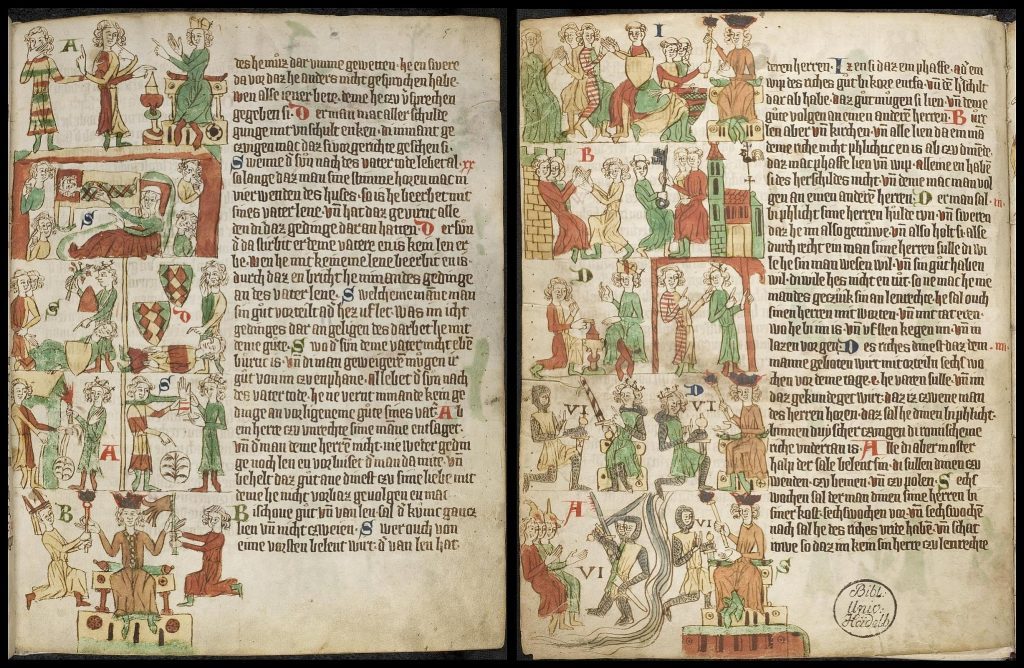 A
5
des he mûz dar vmme gewetten. he en swere
da vor daz he anders nicht gesprochen habe.
wen alse iener bete. deme he czu vˢsprechen
gegeben si. Der man mac aller schulde
vnschult en ken. di im mant ge
czvgen mac daz si vor gerichte geschen si.
xx
Swenne dˢ sûn nach des vater tode lebet al
so lange daz man sine stimme horen mac in
vier wenden des huses. so is he beerbet mit
sines vater lene. vñ hat daz geuirret alle
den di daz gedinge dar an hatten. Der sûn
da stirbit er deme vatere en is kein len er
be. wen he mit keineme lene beerbit en is.
durch daz en bricht he nimandes gedinge
an des vater lene. Swelcheme manne man
sin gût vorteilt ad he vflet. was im icht
gedinges dar an geligen des darbet he mit
deme gûte. Swo dˢ sûn deme vater nicht ebē
burtic is. vñ di man geweigeren mûgen ir
gût von im czv enphane. al lebet dˢ sûn nach
des vater tode. he ne vernt nimande kein ge
dinge an vorligeneme gûte sines vatˢ. Ab
ein herre czv vnrechte sime manne entsaget.
vñ dˢ man deme herrē nicht. nie weder gedin
ge noch len en vorluset dˢ man da mite. vñ
behelt daz gût ane dinest czu sime liebe mit
deme he nicht vorbaz gevolgen en mac.
Bischoue gût vñ van len sal dˢ kûnic gancz
lien vñ nicht czweien. Swer ouch von
eime vorsten belent wirt. dˢ van len hat.
S
D
S
A
B
I
deren herren. Iz en si daz ein phaffe. adˢ ein
wip des riches gût bi kore entfa. vñ dē hˢschilt
dar ab habe. daz gût mûgen si lien. vñ deme
gûte volgen an einen anderē herren. Bûrc
len aber vñ kirchen. vñ alle len da ein mā
deme riche nicht phlichtic en is ab czv dinēde.
daz mac phaffe lien vñ wip. alleine en habē
si des herschildes nicht. vñ deme mac man vol
gen an einen anderē herren. Der man sal
bi phlicht sime herren hulde tvn. vñ sweren
daz he im also getruwe. vñ also holt si. alse
durch recht ein man sime herren sulle di wi
le he sin man wesen wil. vñ sin gût haben
wil. di wile hes nicht en tût. so ne mac he ni
mandes geczûk sin an lenrechte. he sal ouch
sinen herren mit worten. vñ mit tat eren.
wo he bi im is. vñ vf sten kegen im. vñ in
lazen vor gen. Des riches dinest daz dem
manne geboten wirt mit orteiln sechs wo
chen vor deme tage. e he varen sulle. vñ im
daz gekundeget wirt. daz iz czwene man
des herren horen. daz sal he dinen bi phlicht.
binnen duyscher czvngen di romischeme
riche vndertan is. Alle di aber in oster
halp der sale belent sin. di sullen dinen czu
wenden. czv bemen. vñ czv polen. Sechs
wochen sal der man dinen sime herren bi
siner kost. sechs wochen vor. vñ sechs wochē
nach sal he des riches vride habē. vñ schat
rowe so daz im kein sin herre czu lenrechte
B
D
D
VI
VI
A
VI
VI
S
Bibl:
Univ:
Heidelb